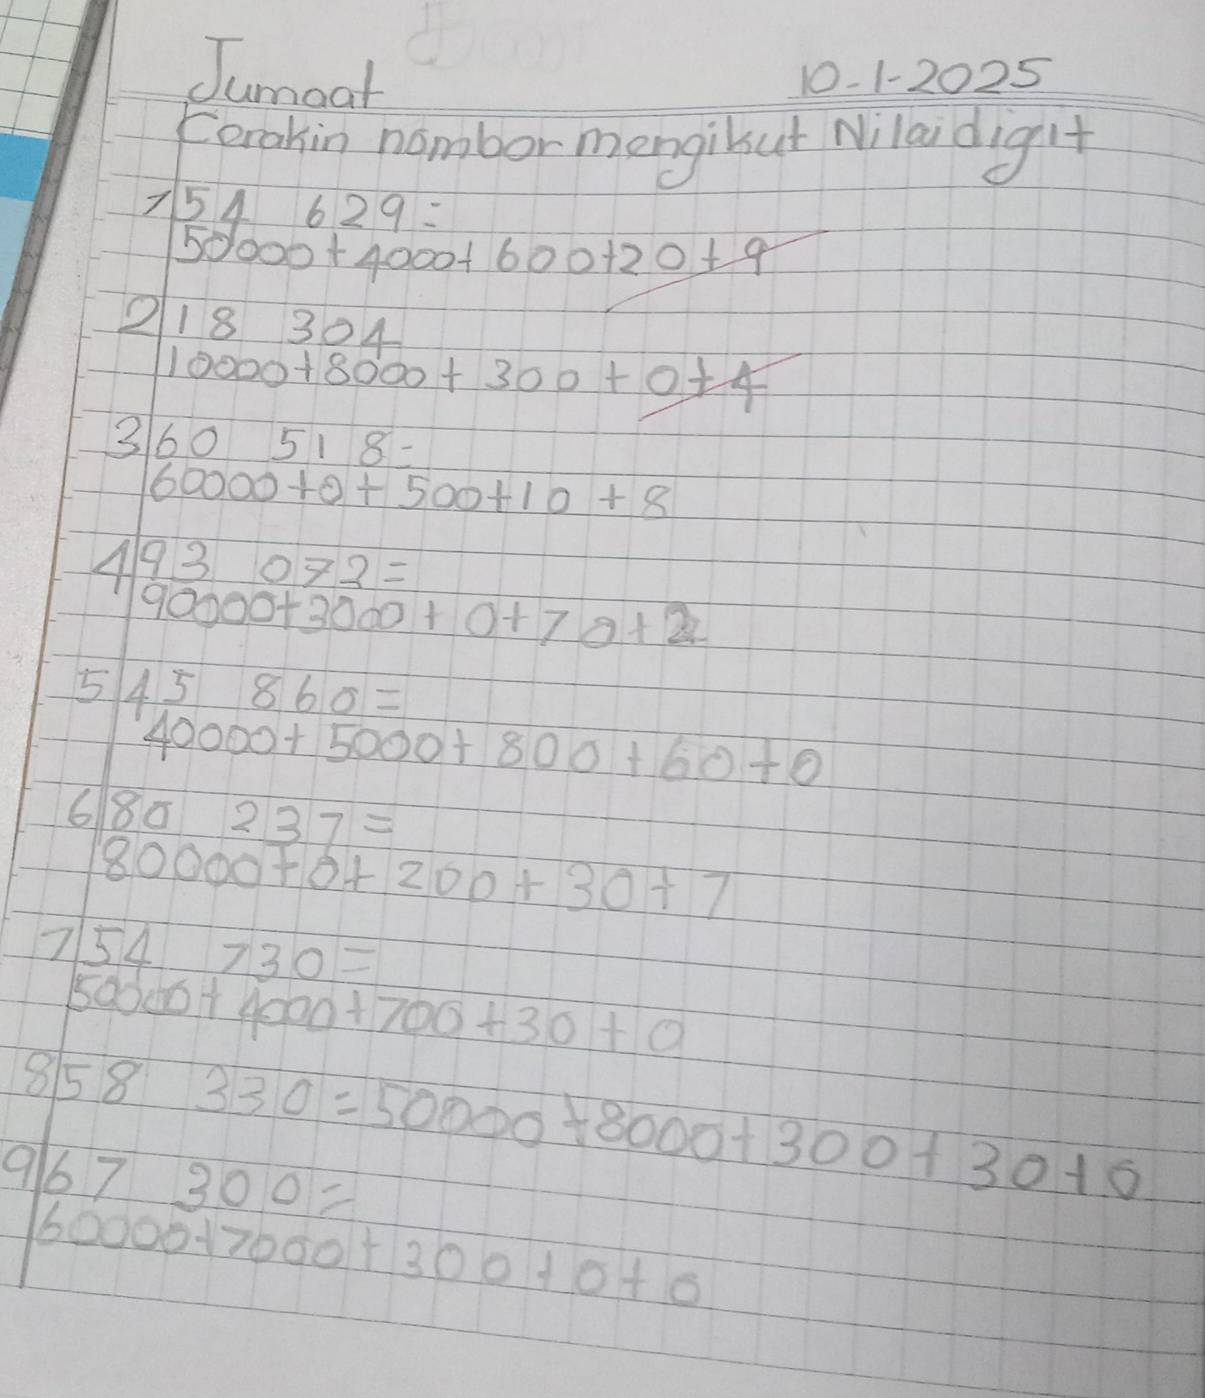 Jumaat 10-1-2025
Cerakin nombor mengikut Nilai digit
1 54 629 =
50000+4000+600+20+9
2 18 304
10000+8000+300+0+4
3 60 518=
60000+0+500+10+8
4 93 072=
90000+3000+0+70+2
5 45 860=
40000+5000+800+60+0
6 80 237=
80000+0+200+30+7
7 54 730=
50000+4000+700+30+0
8 58 330=50000+8000+300+30+0
9 67 300=
60000+7000+300+0+0